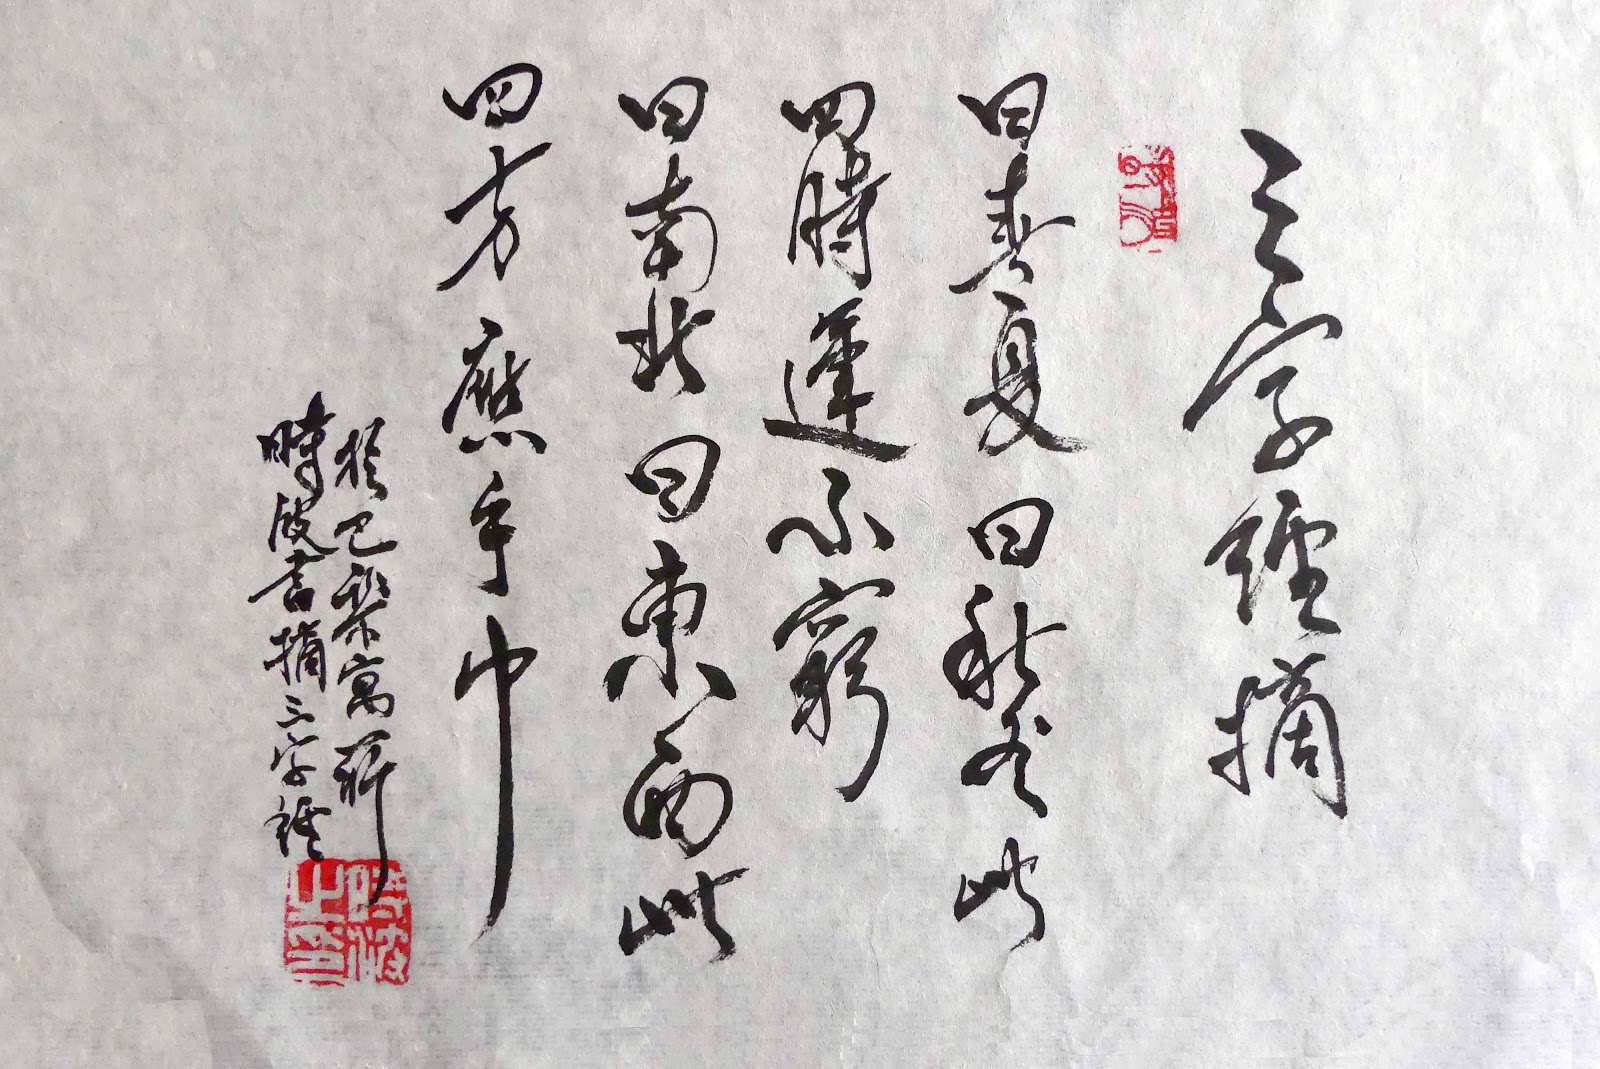 三字經摘
曰春夏曰秋冬此
四時運不窮
曰南北曰東西此
四方應乎中
於巴黎寓所
時波書摘三字經
時波之印